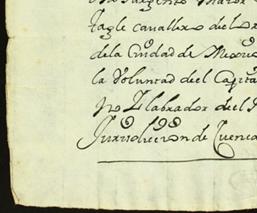 Sargento Maior
tagle cavallero de
de la Ciudad de Mexico
la Voluntad del Capita
Labrador del
Jurisdiccion de Cuenca